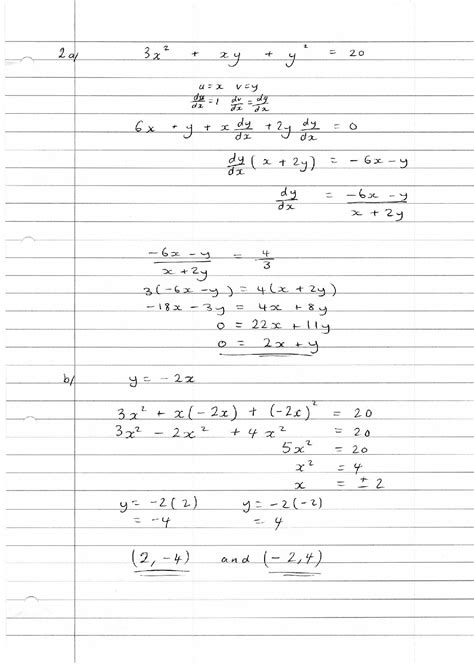 2a/ 3x² + xy + y² = 20
u = x v = y
du/dx = 1 dv/dx = dy/dx
6x + y + x dy/dx + 2y dy/dx = 0
dy/dx (x + 2y) = -6x - y
dy/dx = (-6x - y)/(x + 2y)
(-6x - y)/(x + 2y) = 4/3
3(-6x - y) = 4(x + 2y)
-18x - 3y = 4x + 8y
0 = 22x + 11y
0 = 2x + y
b/ y = -2x
3x² + x(-2x) + (-2x)² = 20
3x² - 2x² + 4x² = 20
5x² = 20
x² = 4
x = ± 2
y = -2(2) y = -2(-2)
= -4 = 4
(2, -4) and (-2, 4)